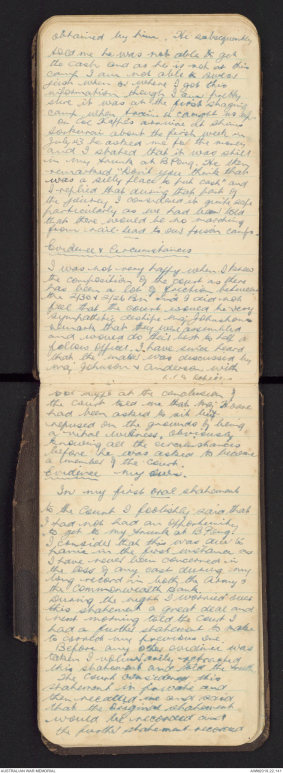 obtained by him. He subsequently
told me he was not able to get
the cash and as he is not in this
camp I am not able to
just when or where I got this
information though I am pretty
sure it was at the first staging
camp when
On Lt. arrival at Shimo
Sonkurai about the first week in
July 43 he asked me for the money
and I stated that it was still
in my trunk at B Pong. He then
remarked "Don't you think that
was a silly place to put cash" and
I replied that during that part of
the journey I considered it quite safe
particularly as we had been told
that there would be no marching
from rail head to our prison camps.
Evidence & Circumstances
I was not very happy when I knew
the composition of the court as there
has been a lot of friction between
the 2/30 & 2/26 Bn and I did not
feel that the court would be very
sympathetic despite Maj Johnston's
remark that they were assembled
and would do their best to help a
fellow officer. I have since heard
that the matter was discussed by
Maj Johnston & Anderson with
at the conclusion of
the Court told me that Maj
had been asked to sit but
refused on the grounds of being
a vital witness, obviously
knowing all the circumstances
before he was asked to become
a member of the court.
Evidence - My Own.
In my first oral statement
to the Court I foolishly said that
I had not had an opportunity
to get to my trunk at B Pong.
I consider that this was due to
panic in the first instance as
I have never been concerned in
the loss of any cash during my
long record in both the Army &
the Commonwealth Bank.
During the night I worried over
this statement a great deal and
next morning told the Court I
had a further statement to make
to correct my previous one.
Before any other evidence was
taken I voluntarily retracted
this statement and told the truth.
The Court considered this
statement in private and
then recalled me and said
that the original statement
would be recorded and
the further statement recorded
AUSTRALIAN WAR MEMORIAL